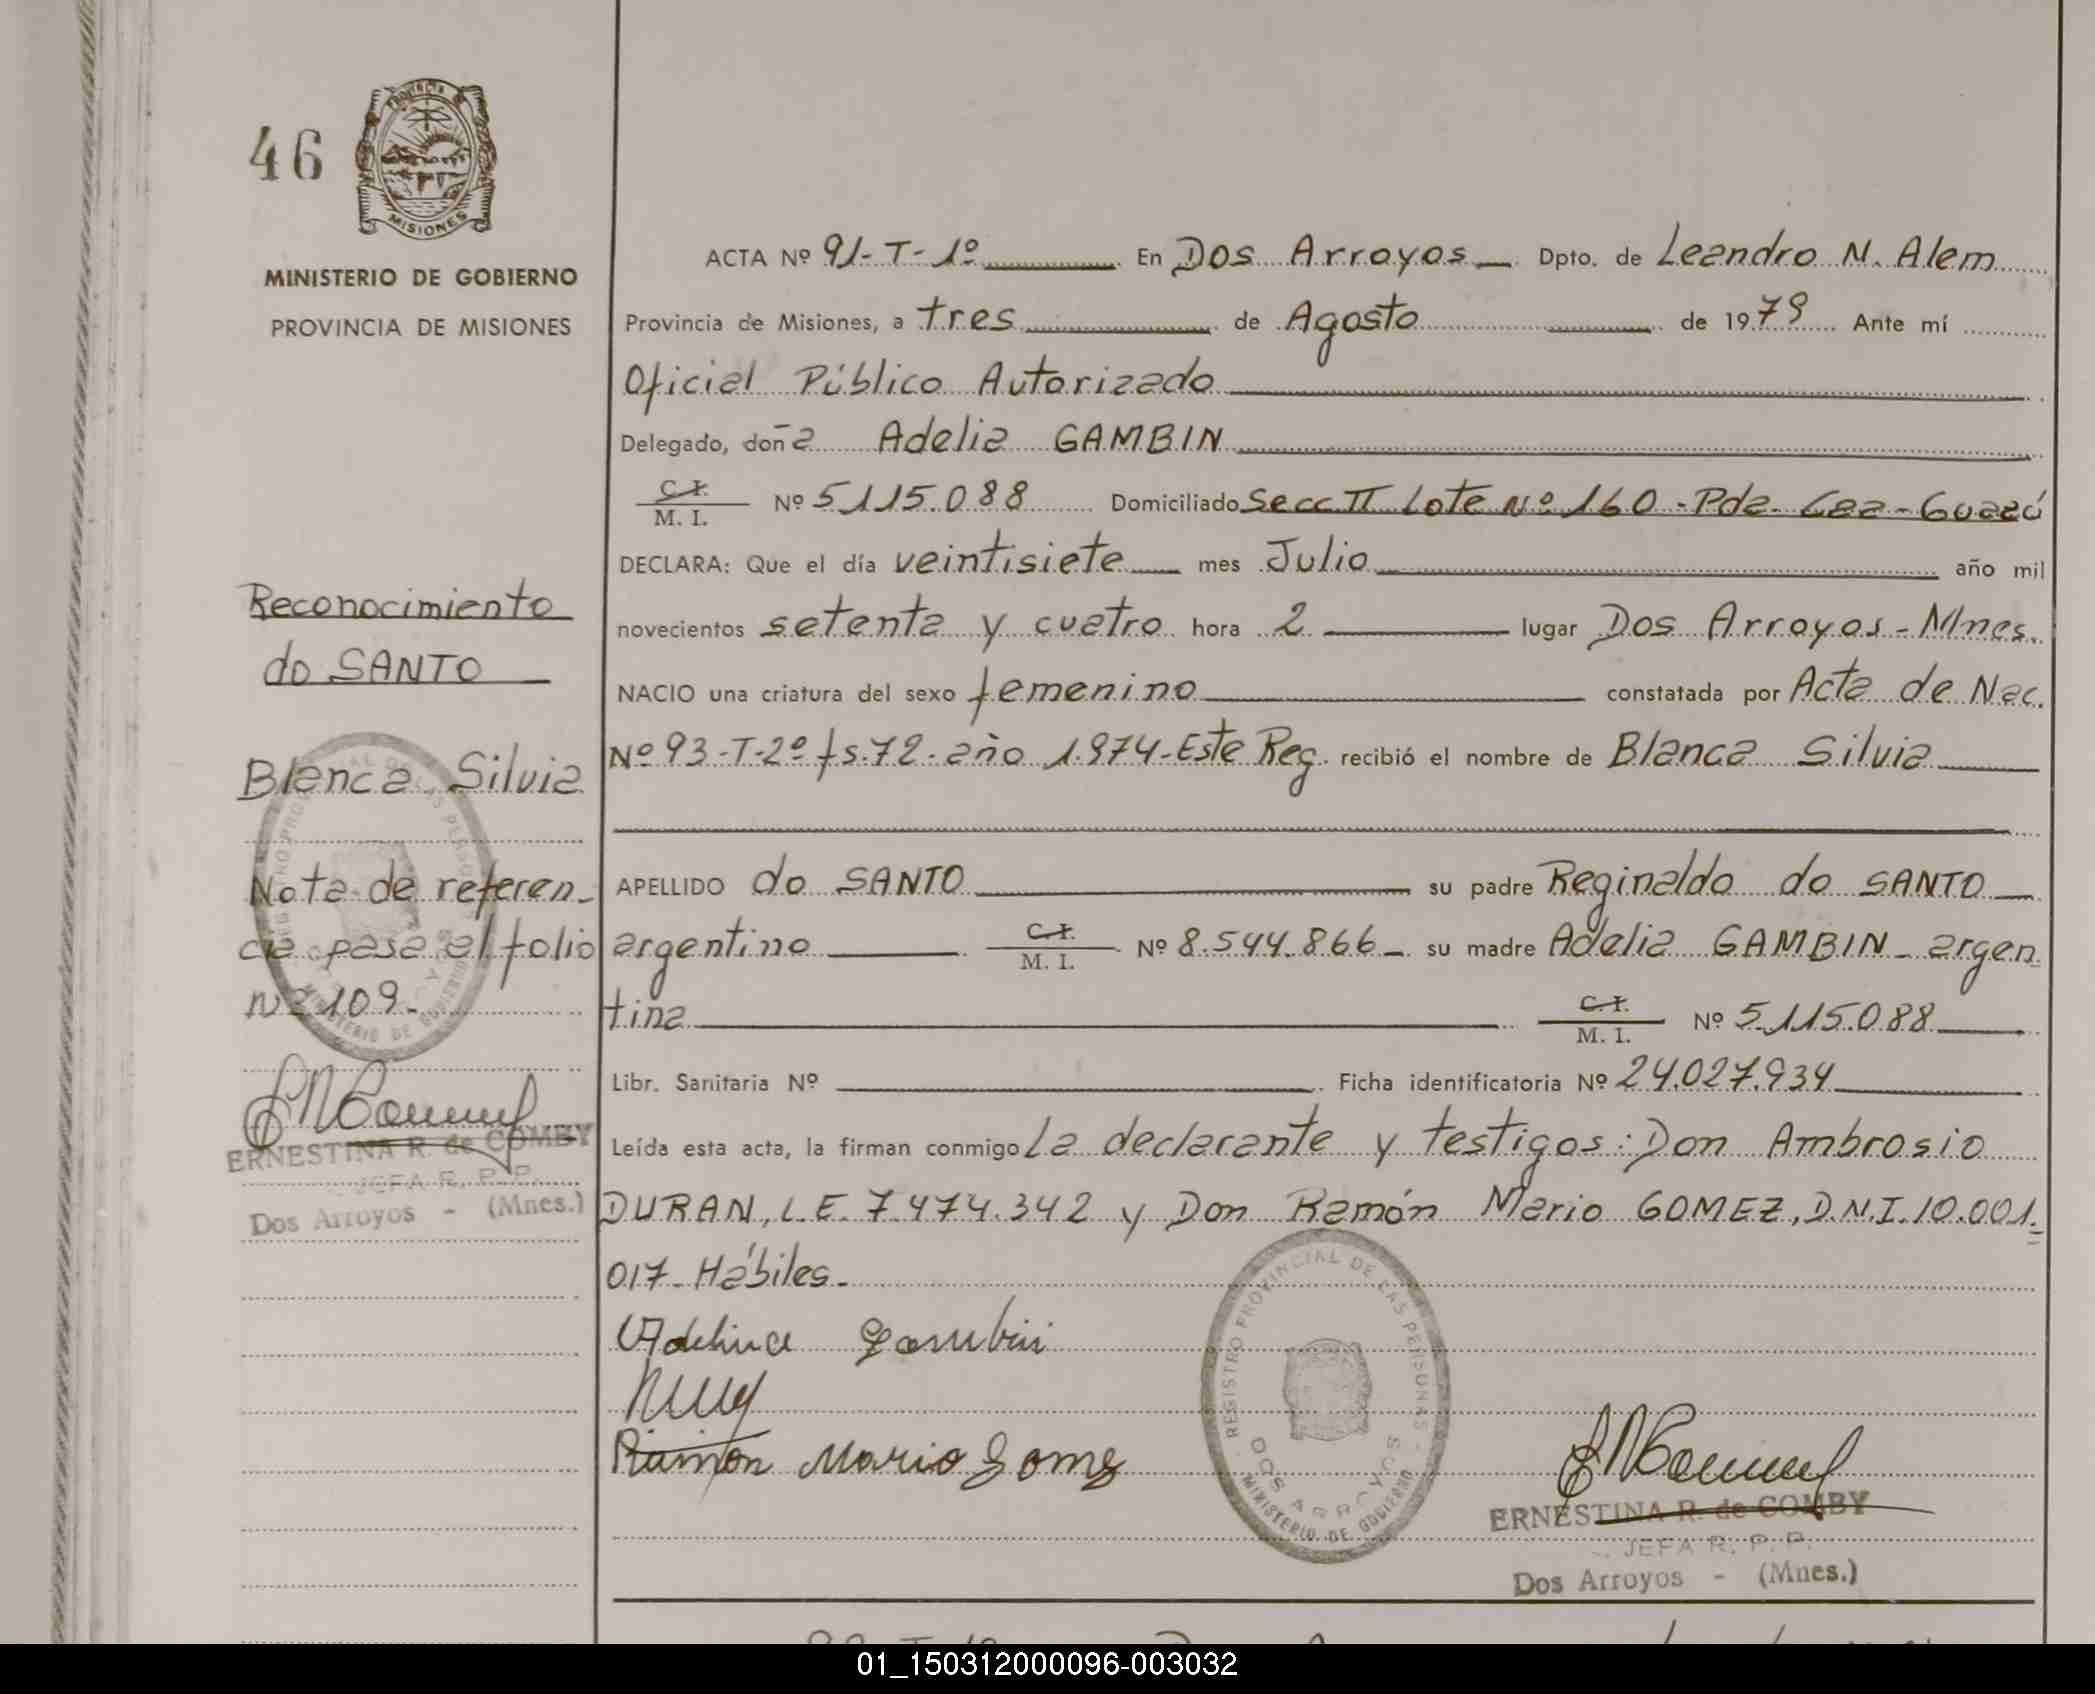 46
PROVINCIA DE
MISIONES
MINISTERIO DE GOBIERNO
PROVINCIA DE MISIONES
ACTA Nº 91-T-1º En Dos Arroyos Dpto. de Leandro N. Alem
Provincia de Misiones, a tres de Agosto de 1979 Ante mí
Oficial Público Autorizado
Delegado, doña Adelia GAMBIN
C. I.
M. I. Nº 5115.088 Domiciliado Secc II Lote Nº 160 - Pda. Caa-Guazú
DECLARA: Que el día veintisiete mes Julio año mil
novecientos setenta y cuatro hora 2 lugar Dos Arroyos - Mnes.
NACIO una criatura del sexo femenino constatada por Acta de Nac.
Nº 93-T-2º fs. 72 - año 1.974 - Este Reg. recibió el nombre de Blanca Silvia
APELLIDO do SANTO su padre Reginaldo do SANTO
argentino C. I. M. I. Nº 8.544.866 su madre Adelia GAMBIN - argen
tina C. I. M. I. Nº 5.115.088
Libr. Sanitaria Nº Ficha identificatoria Nº 24.027.934
Leída esta acta, la firman conmigo La declarante y testigos: Don Ambrosio
DURAN, L.E. 7.474.342 y Don Ramón Mario GOMEZ, D.N.I. 10.001.
017 - Hábiles.
Ramon Mario Gomez
REGISTRO PROVINCIAL DE LAS PERSONAS
DOS ARROYOS
MINISTERIO DE GOBIERNO
ERNESTINA R. de COMBY
JEFA R. P. P.
Dos Arroyos - (Mnes.)
Reconocimiento
do SANTO
Blanca Silvia
Nota de referen-
cia pasa al folio
Nº 109.
ERNESTINA R. de COMBY
JEFA R. P. P.
Dos Arroyos - (Mnes.)
01_150312000096-003032